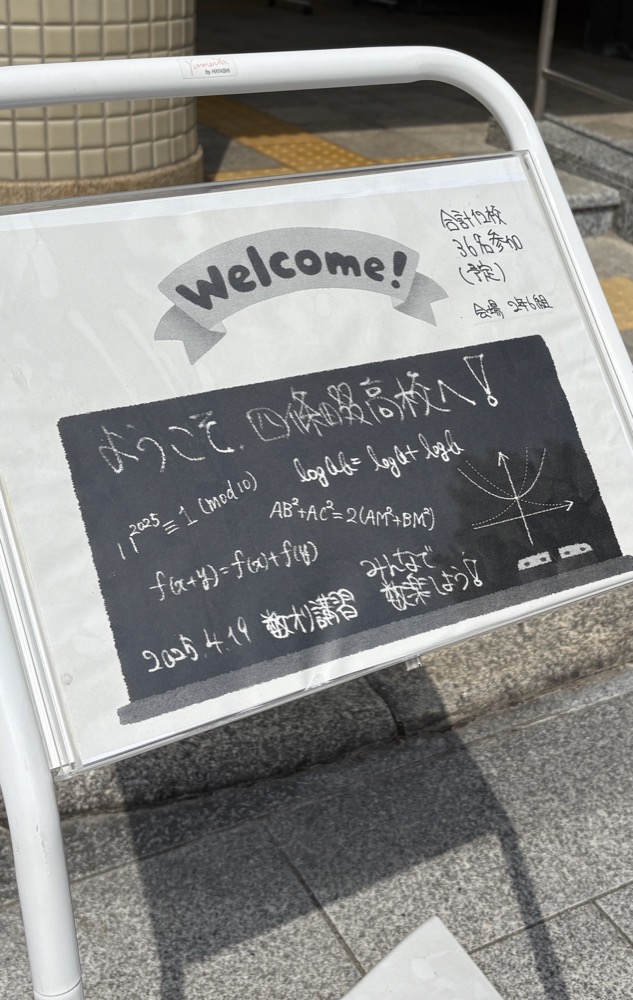 by HAYASHI
Welcome!
合計12校
36名参加
(予定)
会場 2年6組
ようこそ 四條畷高校へ!
log ab = log a + log b
11²⁰²⁵≡1 (mod 10)
AB²+AC²=2(AM²+BM²)
f(x+y)=f(x)+f(y)
みんなで
数楽しよう!
2025.4.19 数オリ講習